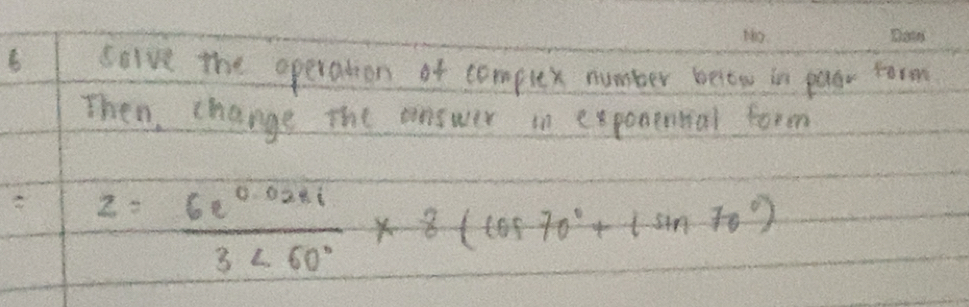 No
Date
6 Solve the operation of complex number below in polar form.
Then, change the answer in exponential form
= z = 6e^0.028i / 3 ∠ 60° × 8 (cos 70° + i sin 70°)